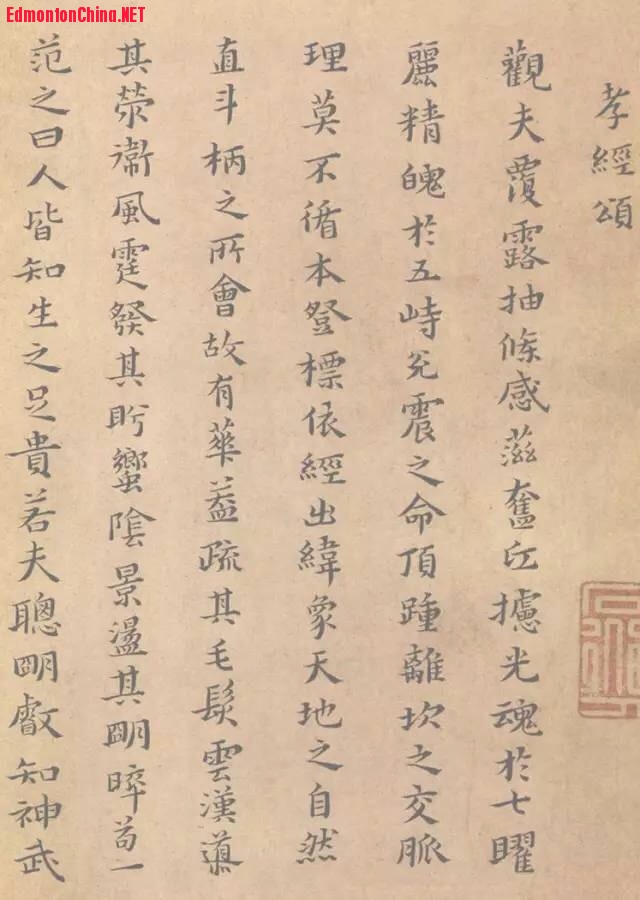 EdmontonChina.NET
孝經頌
觀夫覆露抽條感蕬奮区攄光魂於七曜
麗精魄於五峙兊震之命頂踵離坎之交脈
理莫不循本登標依經出緯象天地之自然
直斗柄之所會故有華葢疏其毛髮雲漢導
其荥衞風霆發其盻蠁陰景盪其朙晬茍一
范之曰人皆知生之足貴若夫聰朙叡知神武